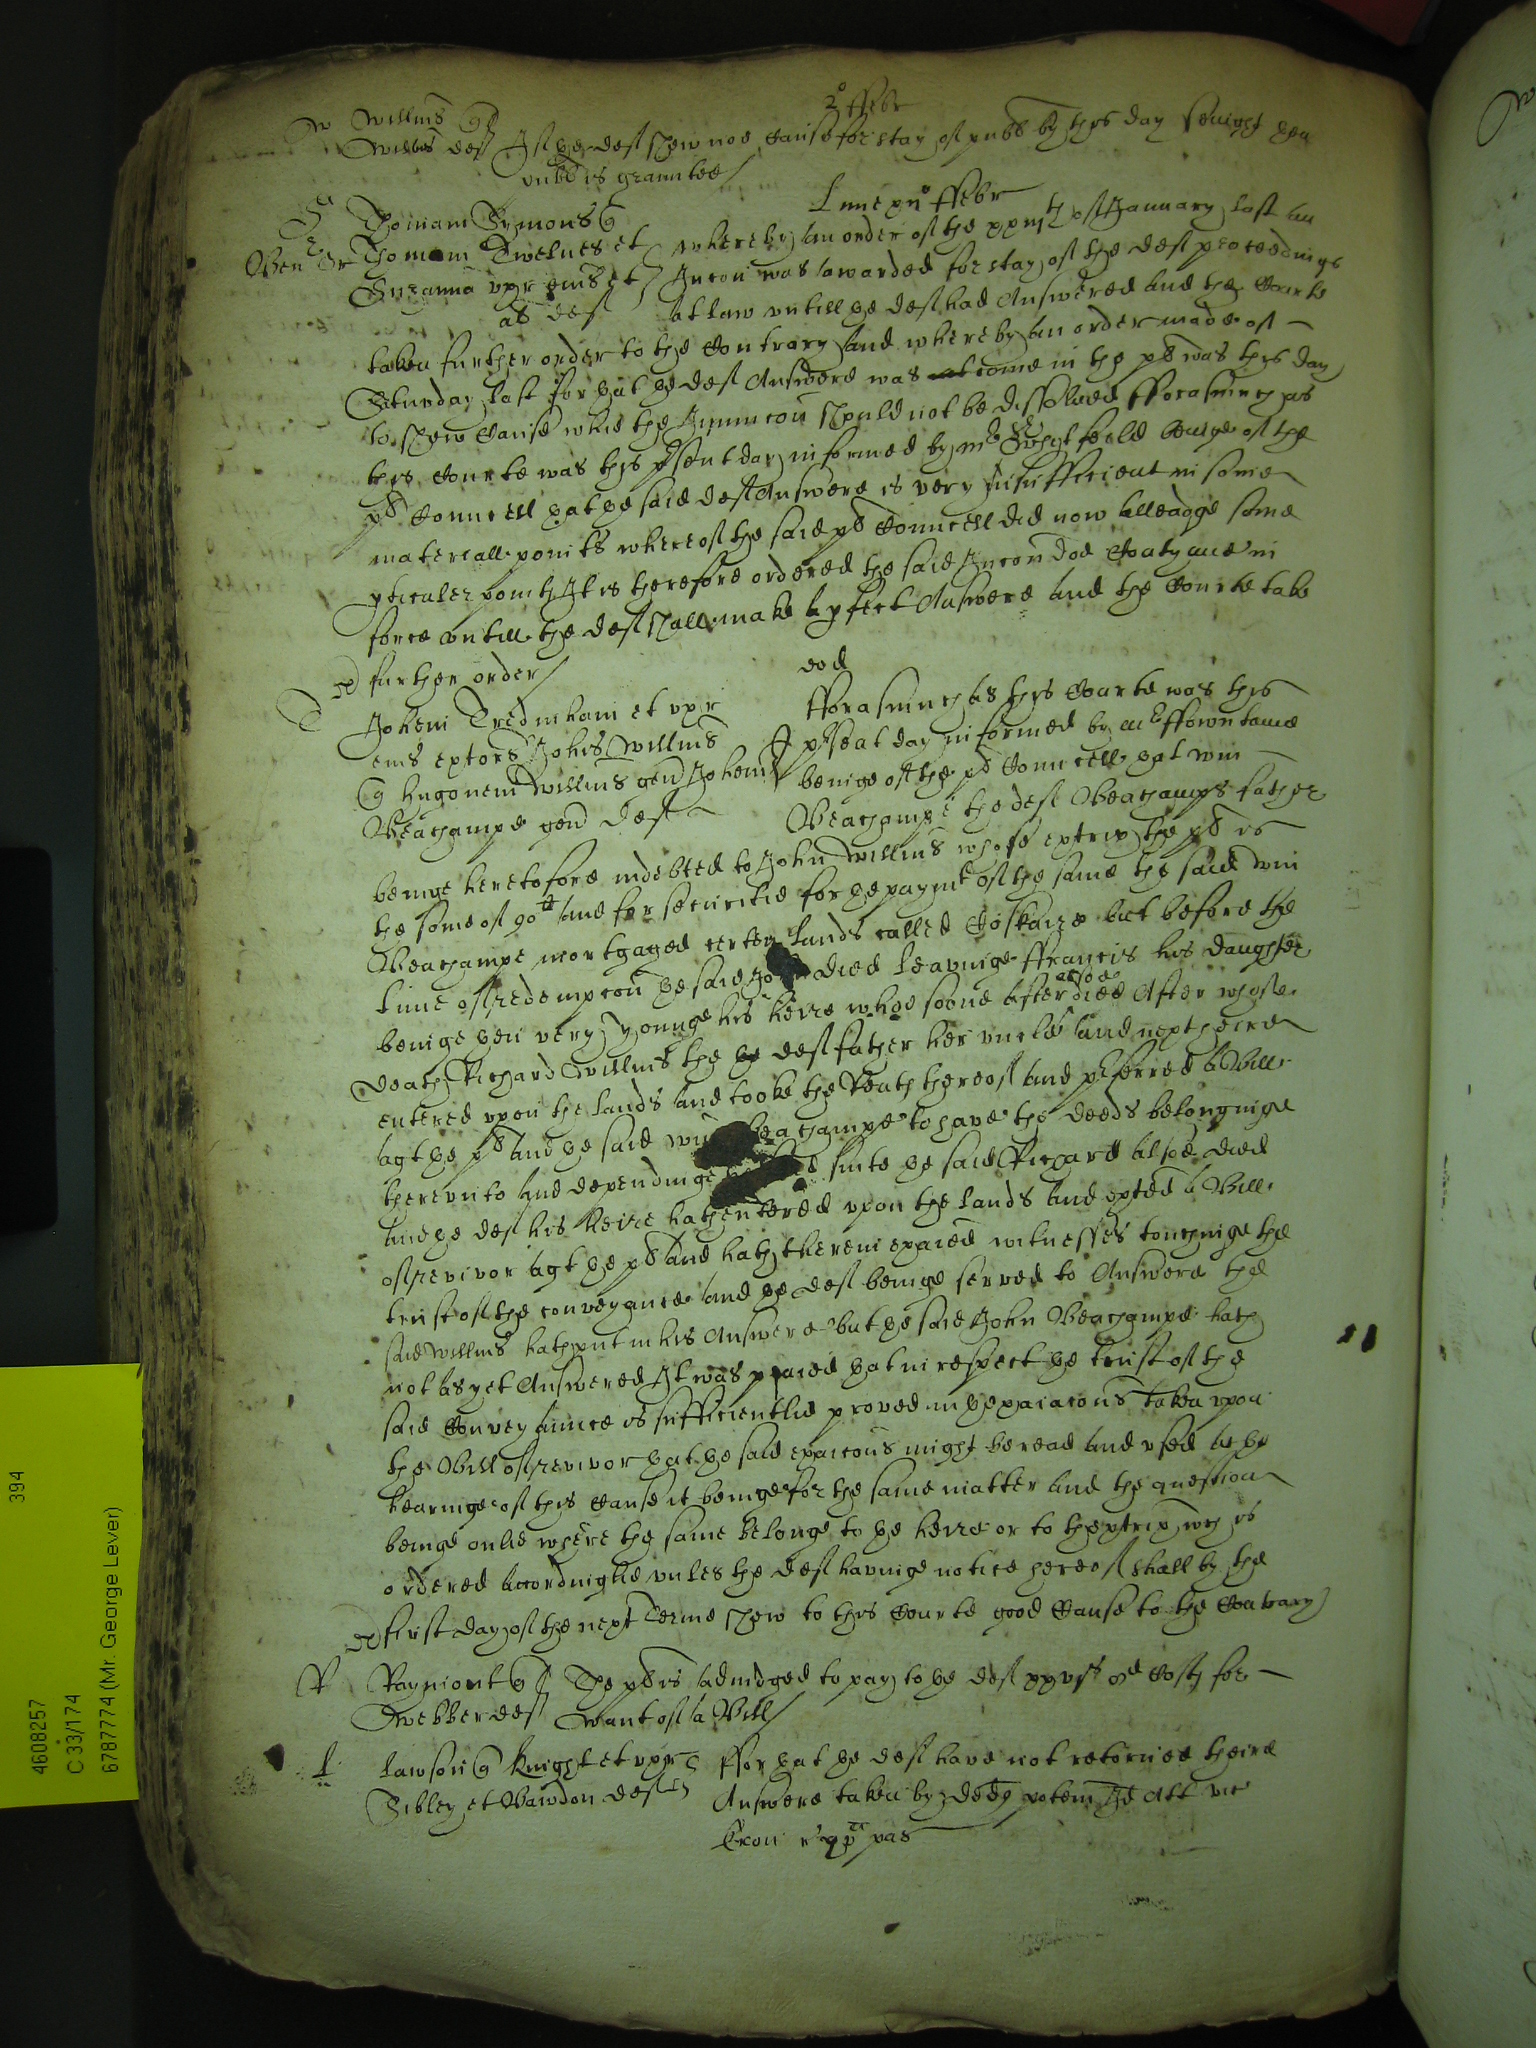 2° ffebr
W Willms q
Willms def If the def shew noe cause for stay of publ by this day sevnight then
publ is graunted
Lune xii° ffebr
S Thomam Symons q
Ben Gr Thomam Twelves et whereby an order of the xxvith of January last an
Suzanna uxor eius et Iniuncon was awarded for stay of the def proceedings
al def at law untill the def had Answered and the Courte
taken further order to the Contrary and whereby an order made of
Saturday last for that the def Answere was come in the pl was this day
to shew cause whie the Iniunccon should not be dissolved fforasmuch as
this Courte was this present day informed by mr Whitfeeld beinge of the
pl Councell that the said def Answere is very insufficient in some
matereall points whereof the said pl Councell did now alleadge some
pticuler point It is therefore ordered the said Iniuncon doe Contynue in
force untill the def shall make a pfect Answere and the Courte take
further order
eod
T Johem Tredinham et uxor fforasmuch as this Courte was this
eius extors Johis Willms q present day informed by mr ffowntaine
hugonem Willms gen Johem beinge of the pl Councell that Wm
Beachampe gen def Beachampe the def Beachamps father
beinge heretofore indebted to John Willms whose extrix the pl is
the some of 90li and for securitie for the paymt of the same the said Wm
Beachampe mortgaged certen lands called Coskaire but before the
time of redempcon the said Jo died leavinge ffrancis his daughter
beinge then very younge his heire whoe soone after alsoe died After whose
death Richard Willms the def father her uncle and next heire
entered upon the lands and tooke the Rents thereof and pferred a Bill
agt the pl and the said Wm Beachampe to have the deeds belonginge
thereunto and dependinge suite the said Richard alsoe died
and the def his heire hath entered upon the lands and exted a Bill
of revivor agt the pl and hath therein exaied witnesses touchinge the
trust of the conveyance and the def beinge served to Answere the
said Willms hath put in his Answere but the said John Beachampe hath
not as yet Answered It was praied that in respect the trust of the
said Conveyance is sufficientlie proved in the exaiacons taken upon
the Bill of revivor that the said exaicons might be read and used at the
hearinge of this cause it beinge for the same matter and the question
beinge onlie where the same belonge to the heire or to the extrix wch is
ordered accordinglie unles the def havinge notice hereof shall by the
first day of the next Terme shew to this Courte good Cause to the Contrary
R Raymont q The pl is adiudged to pay to the def xxvis 8d Costs for
Webber def want of a Bill
L Lawson q Knight et uxor ffor that the def have not retorned theire
Sibley et Bawdon def Answere taken by ded potem Id Att vic